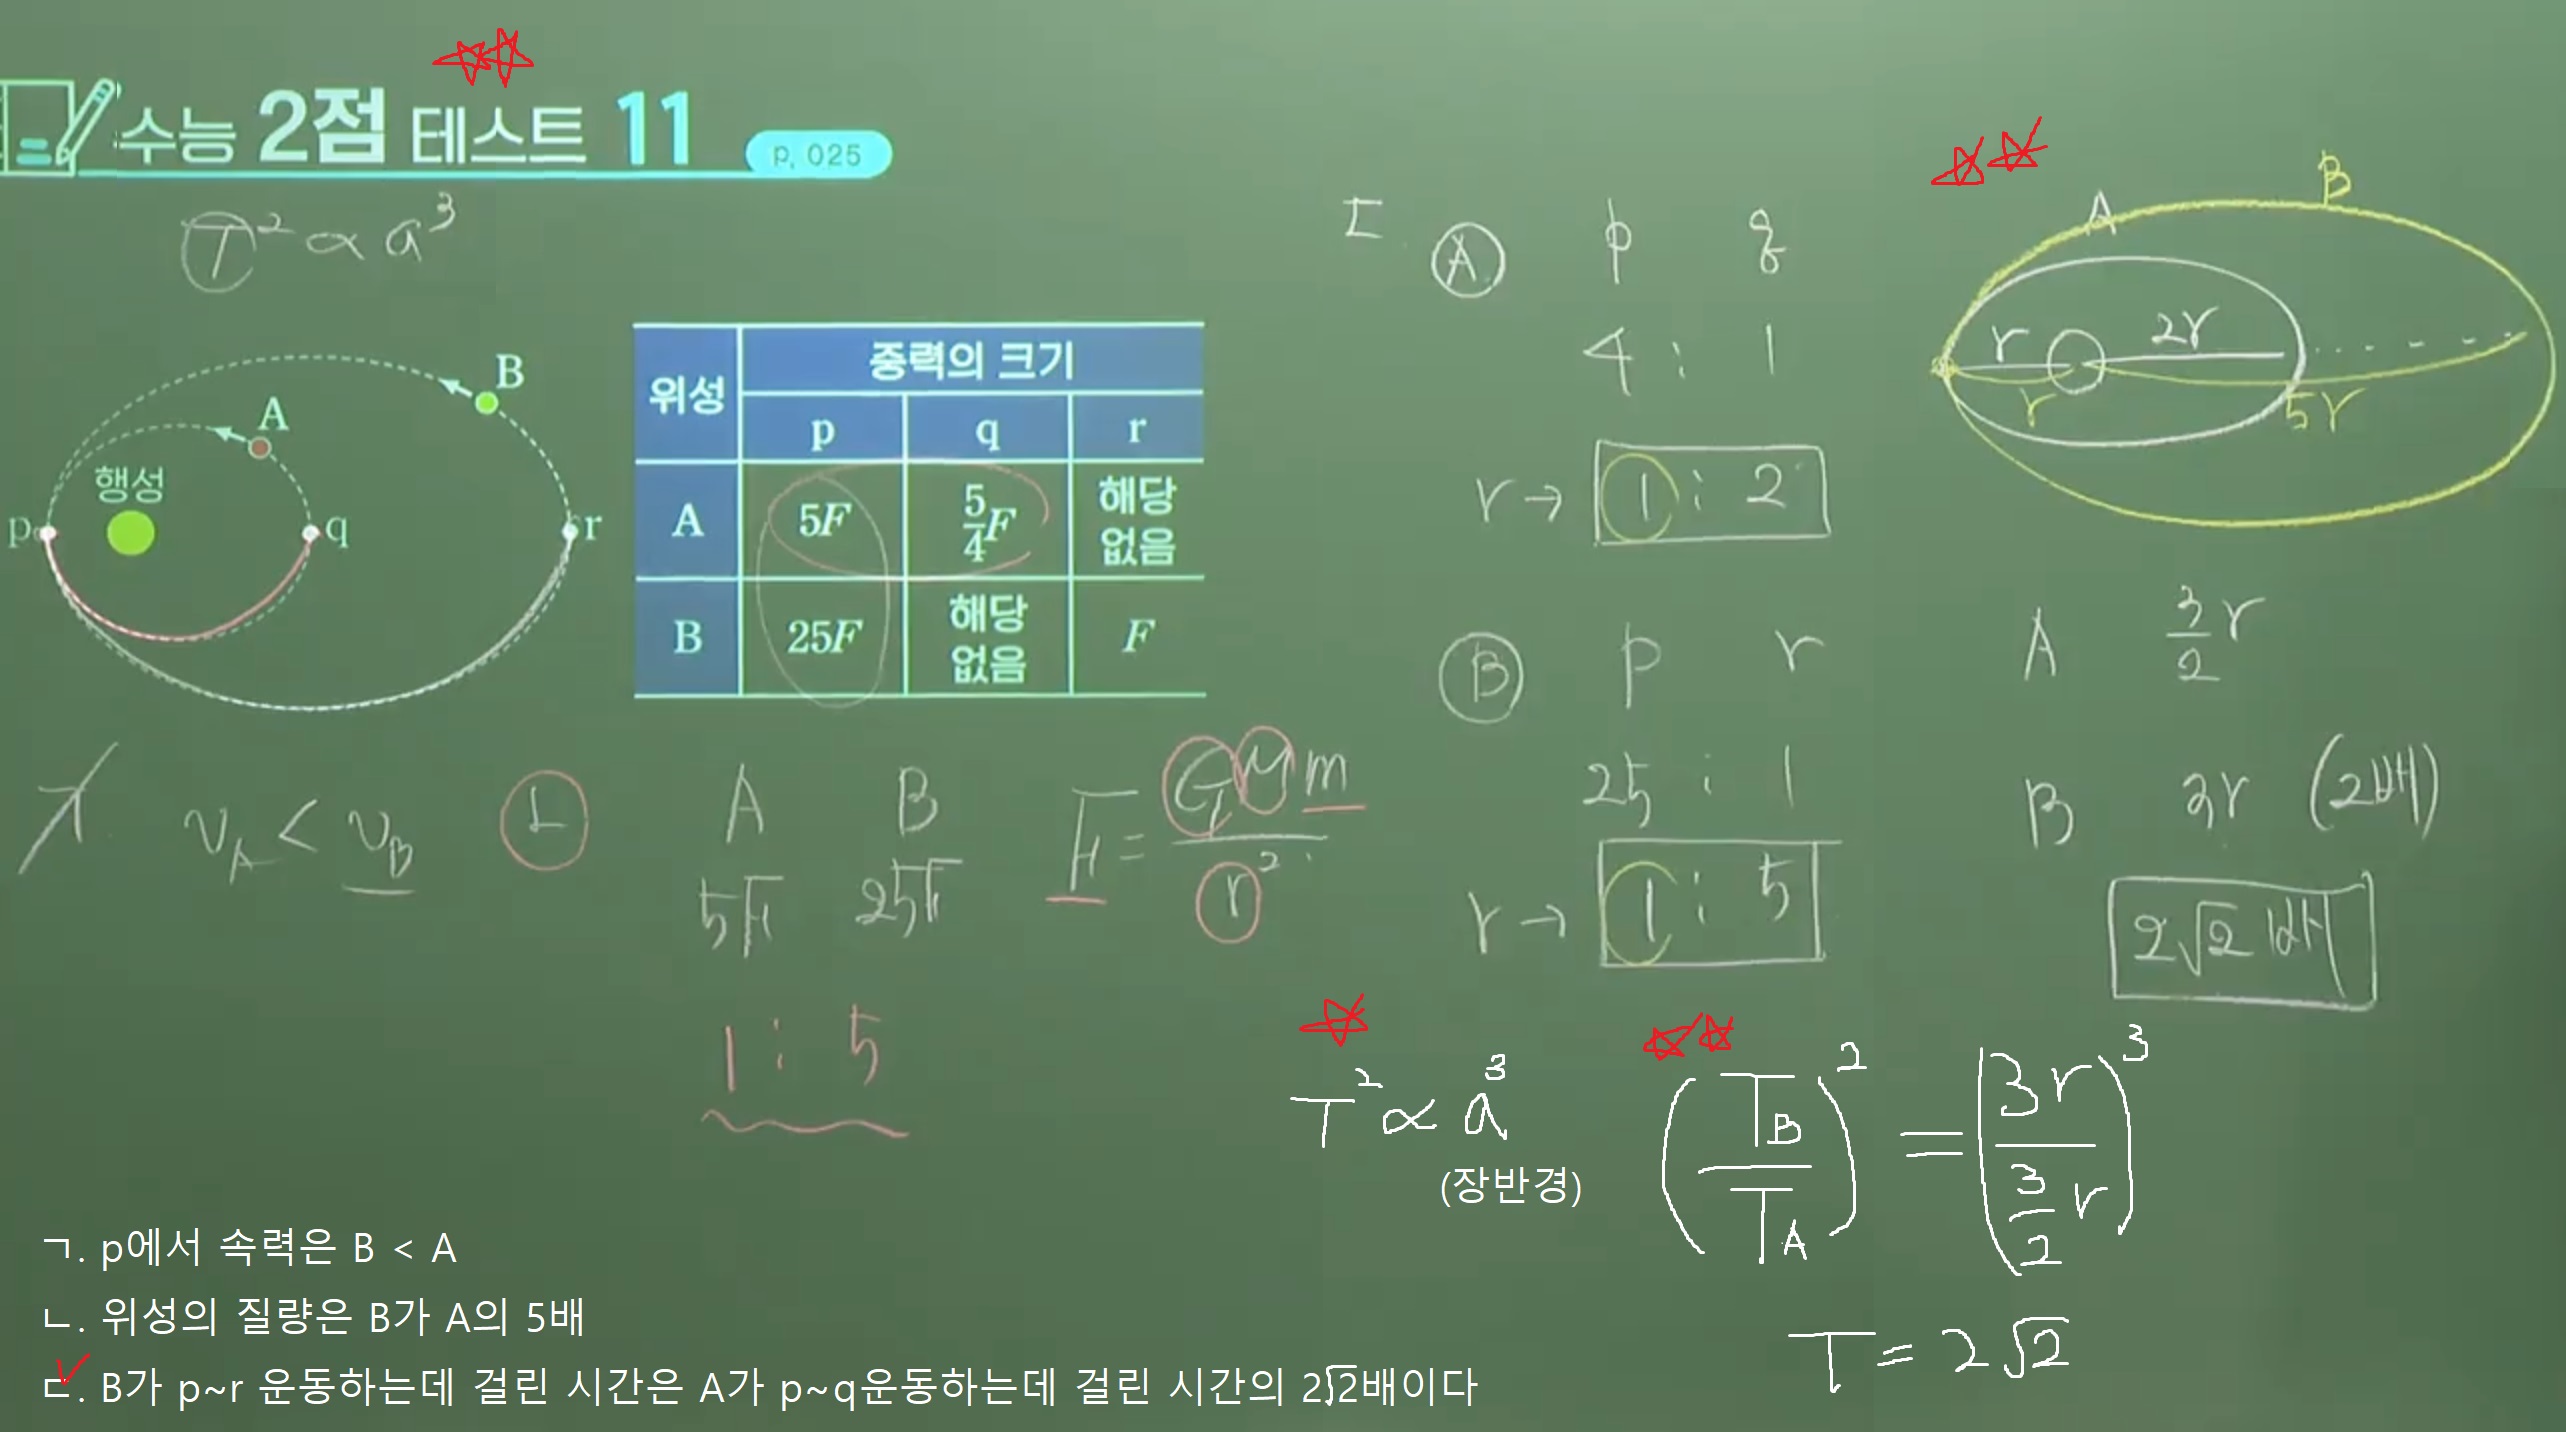 수능 2점 테스트 11
p. 025
T² ∝ a³
B
A
행성
p
q
r
위성
중력의 크기
p q r
A 5F 5/4F 해당 없음
B 25F 해당 없음 F
ㄱ. v_A < v_B
ㄴ
A B
5F 25F
1 : 5
F = GMm/r²
ㄷ.
A p q
4 : 1
r → 1 : 2
B p r
25 : 1
r → 1 : 5
A
B
r 2r
r 5r
A 3/2 r
B 3r (2배)
2√2배
T² ∝ a³
(장반경)
(T_B/T_A)² = (3r/(3/2 r))³
T = 2√2
ㄱ. p에서 속력은 B < A
ㄴ. 위성의 질량은 B가 A의 5배
ㄷ. B가 p~r 운동하는데 걸린 시간은 A가 p~q운동하는데 걸린 시간의 2√2배이다